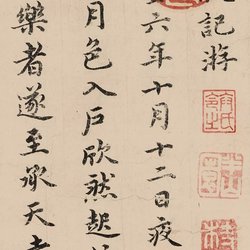 記游
六年十月十二日夜
月色入戶欣然起
樂者遂至承天